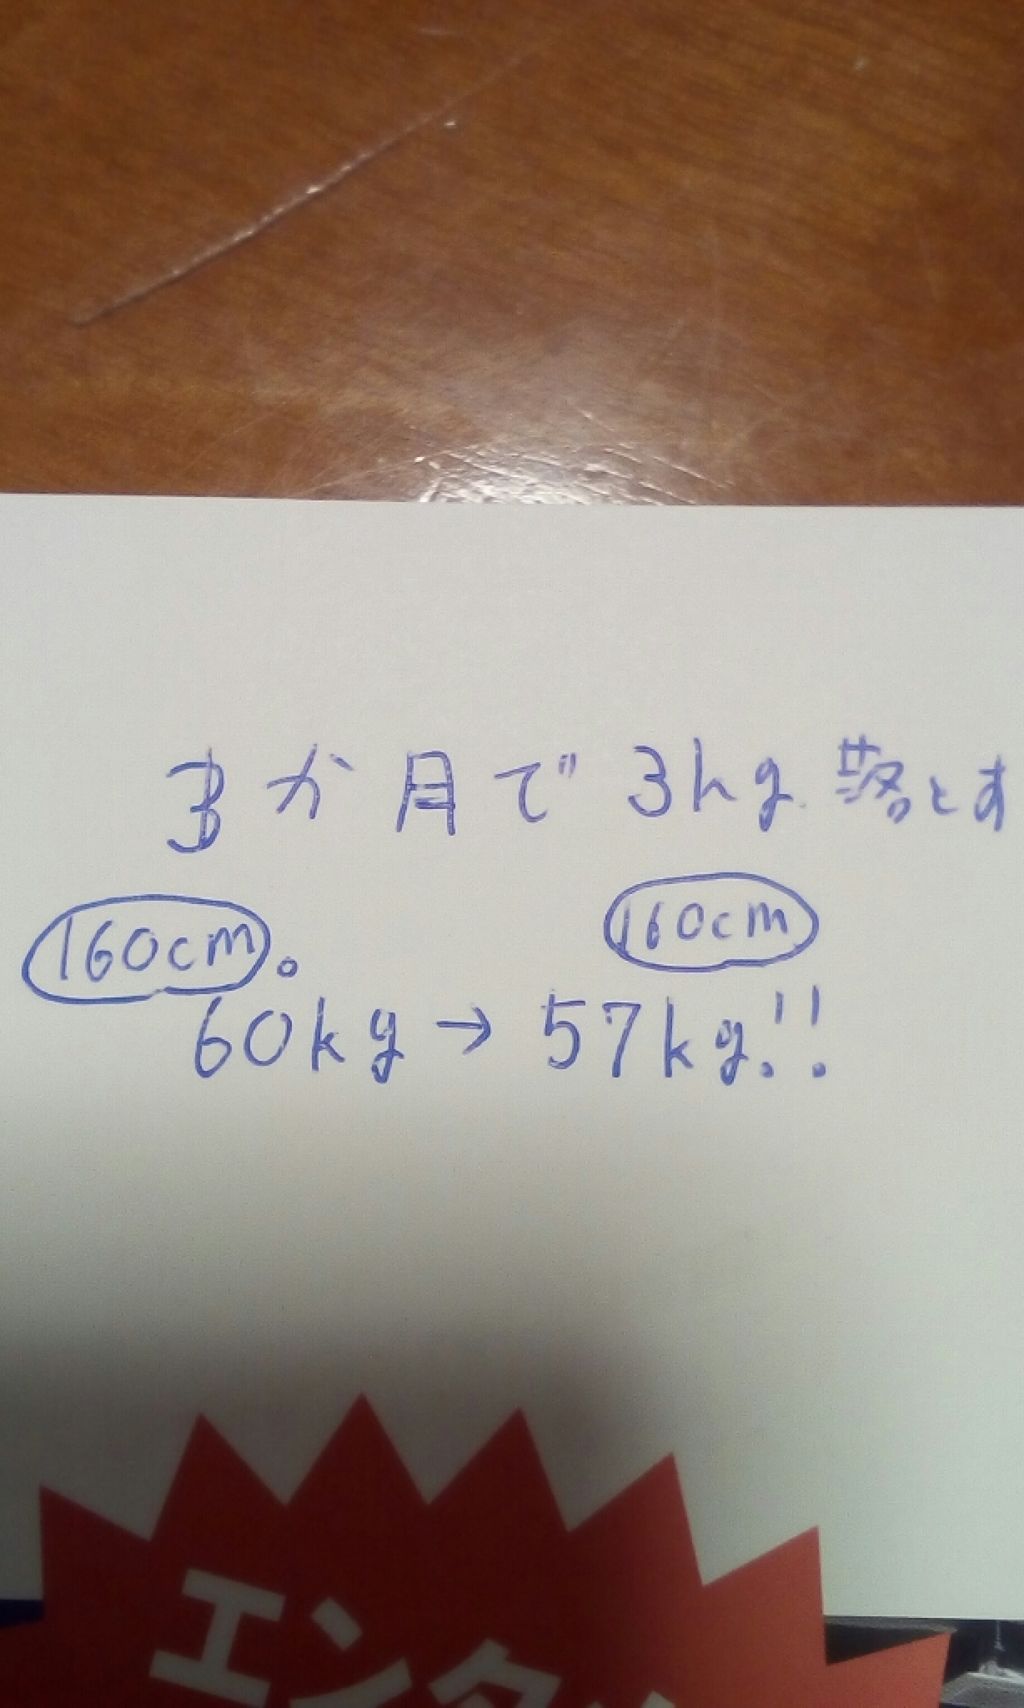 3か月で3kg落とす
160cm。 160cm
60kg→57kg!!
エンタ